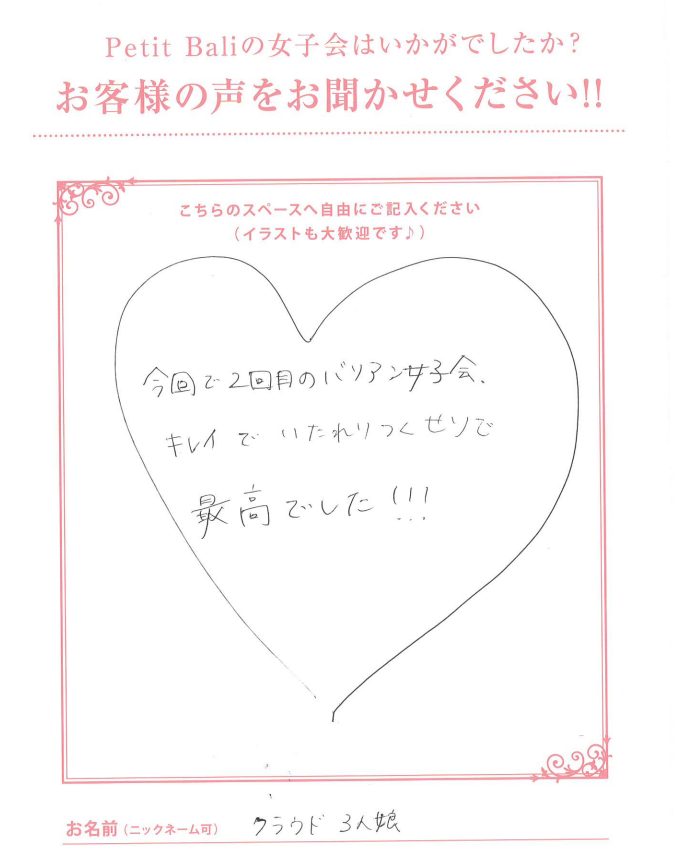 Petit Baliの女子会はいかがでしたか?
お客様の声をお聞かせください!!
こちらのスペースへ自由にご記入ください
(イラストも大歓迎です♪)
今回で2回目のバリアン女子会、
キレイで いたれりつくせりで
最高でした!!!
お名前(ニックネーム可) クラウド 3人娘